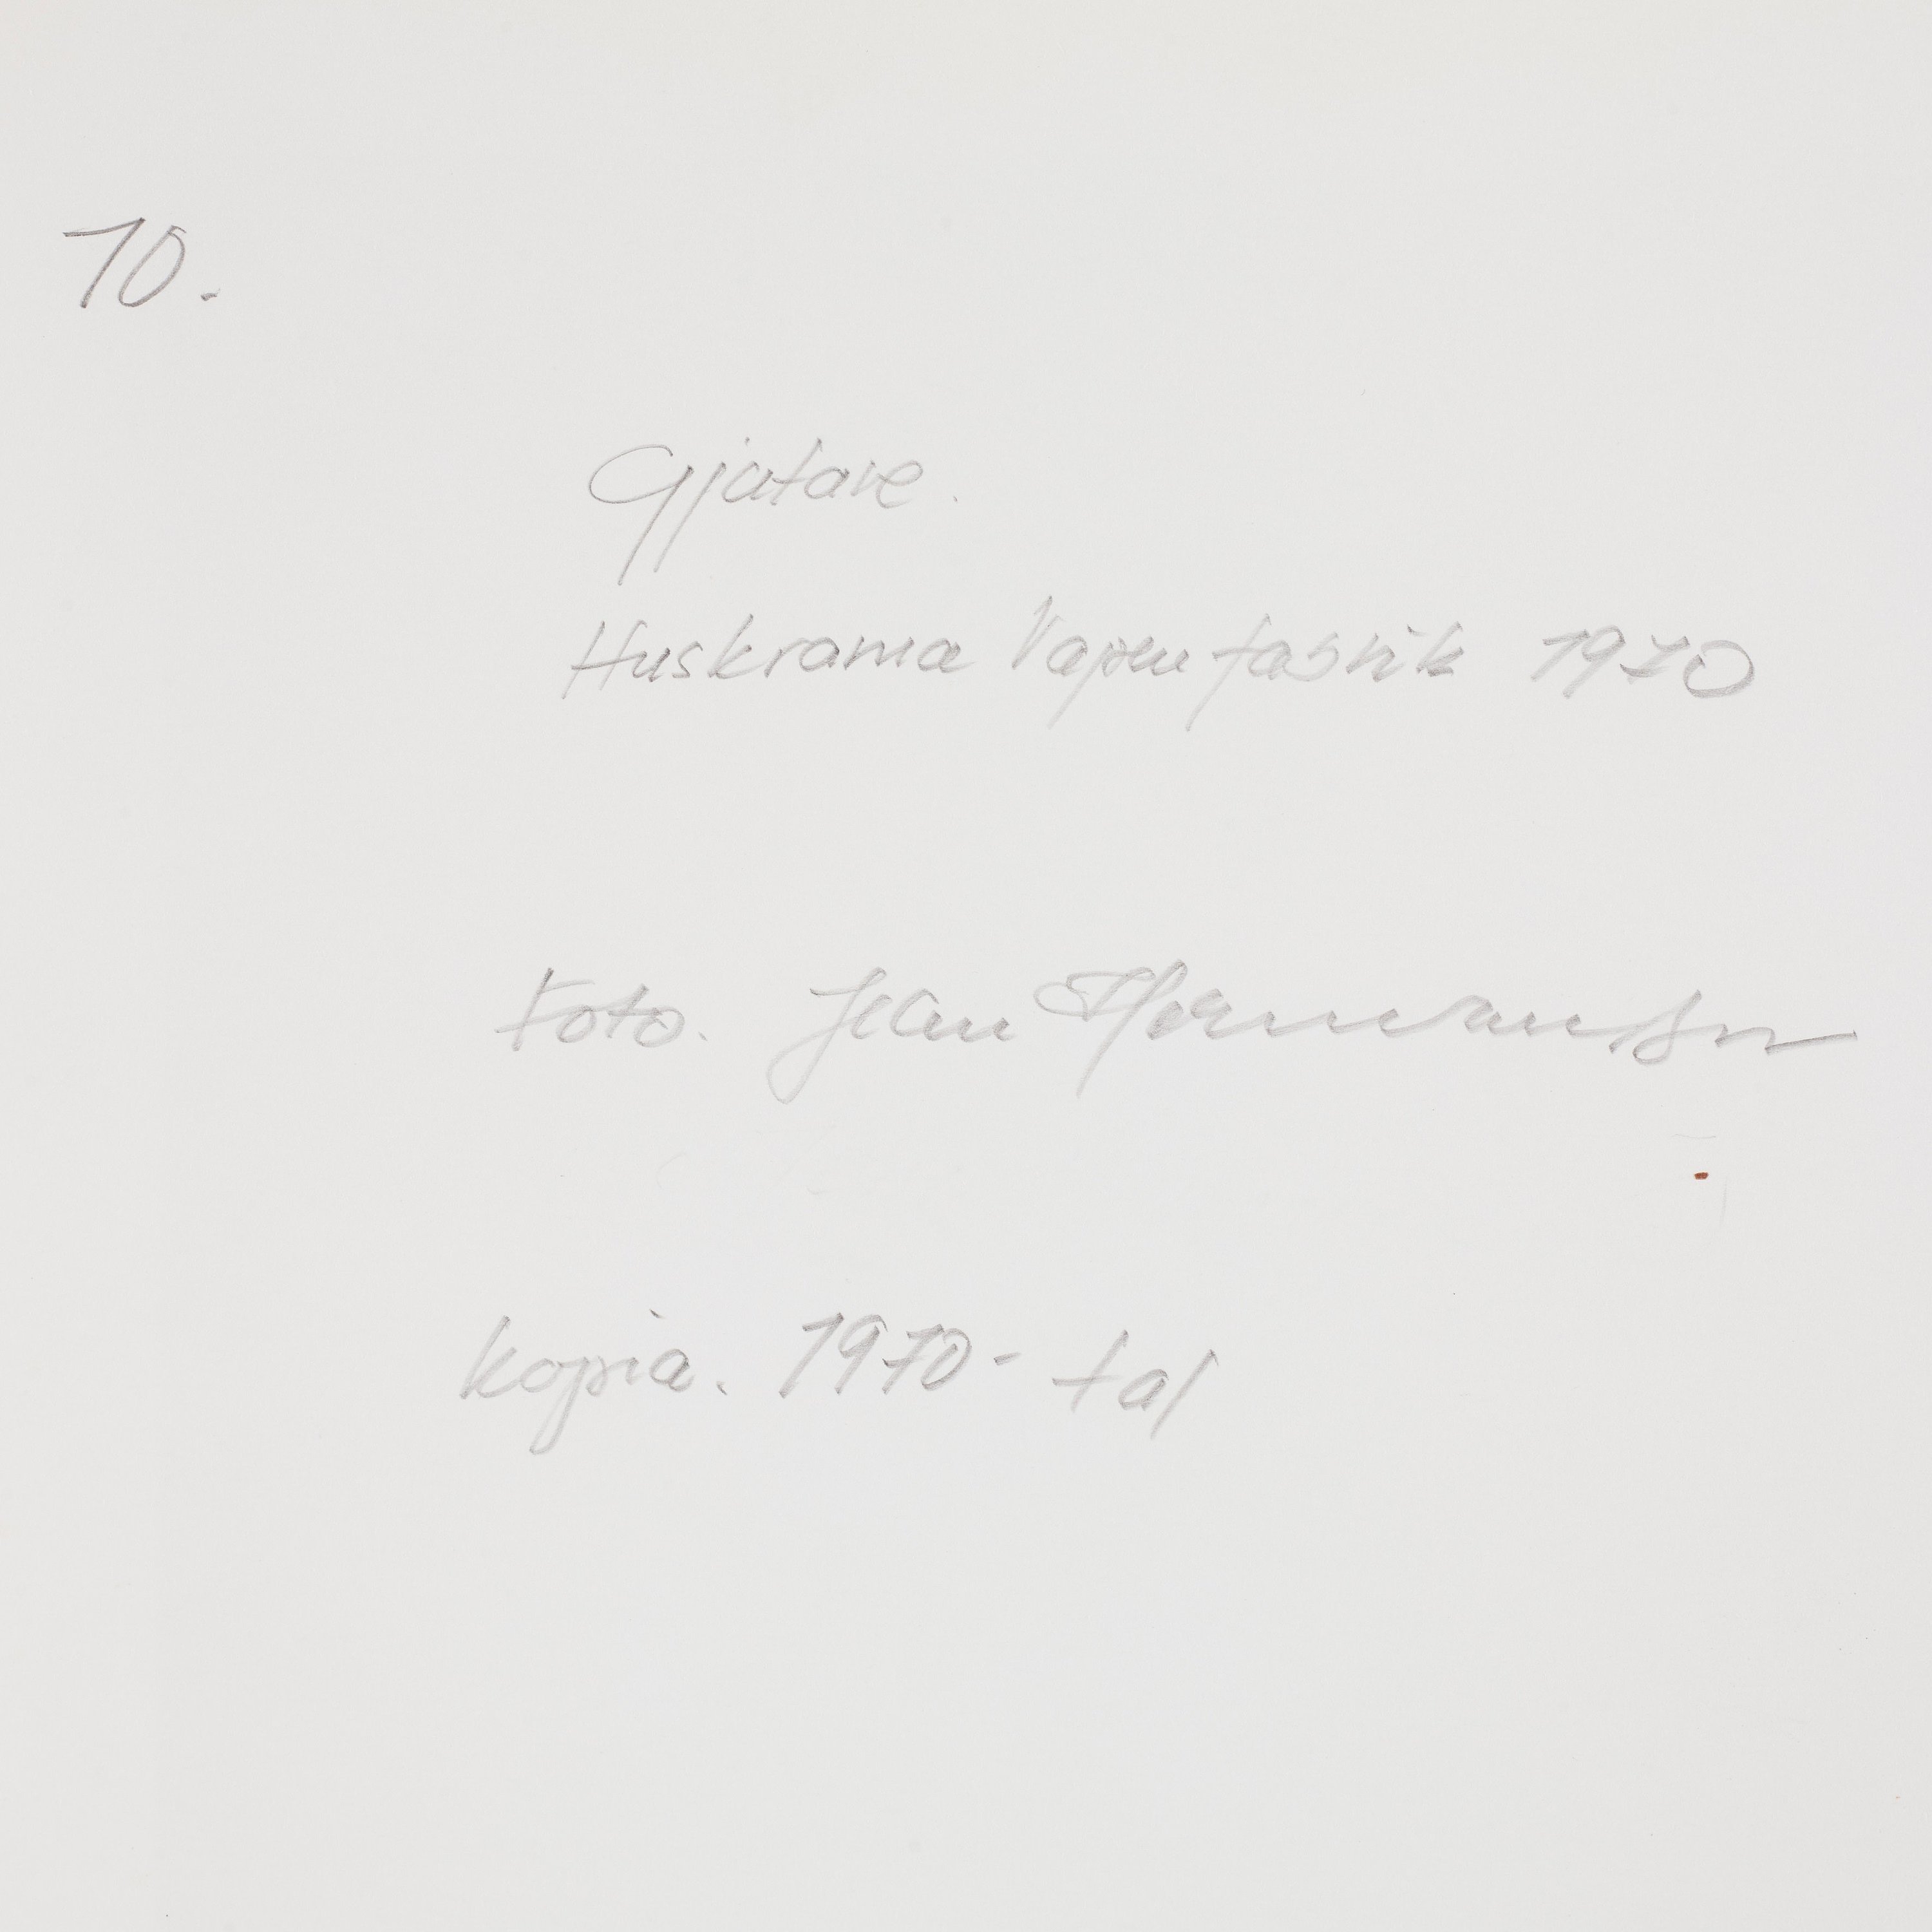 10.
Gjutare.
Huskvarna Vapenfabrik 1970
Foto. Jean Hermanson
kopia. 1970-tal